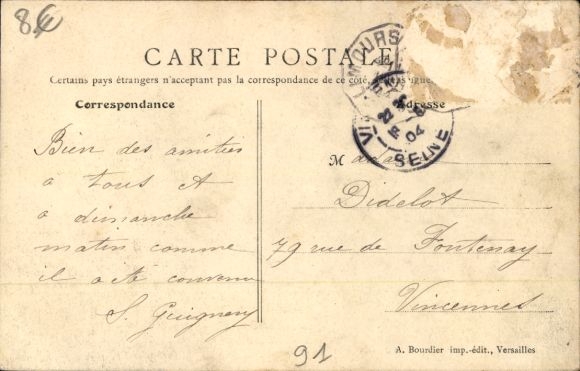 8€
CARTE POSTALE
Certains pays étrangers n'acceptant pas la correspondance de ce côté, se
Correspondance
Adresse
Bien des amitiés
à tous et
à dimanche
matin comme
il a été convenu
MOURS
VI
04
SEINE
M
Didelot
79 rue de Fontenay
Vincennes
91
A. Bourdier imp.-édit., Versailles